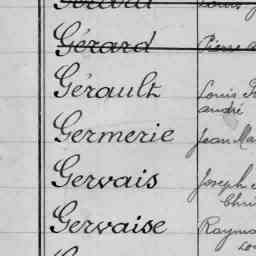 Gérard
Gérault Louis
André
Germerie Jean Ma
Gervais Joseph
Chri
Gervaise Raymo
Lou